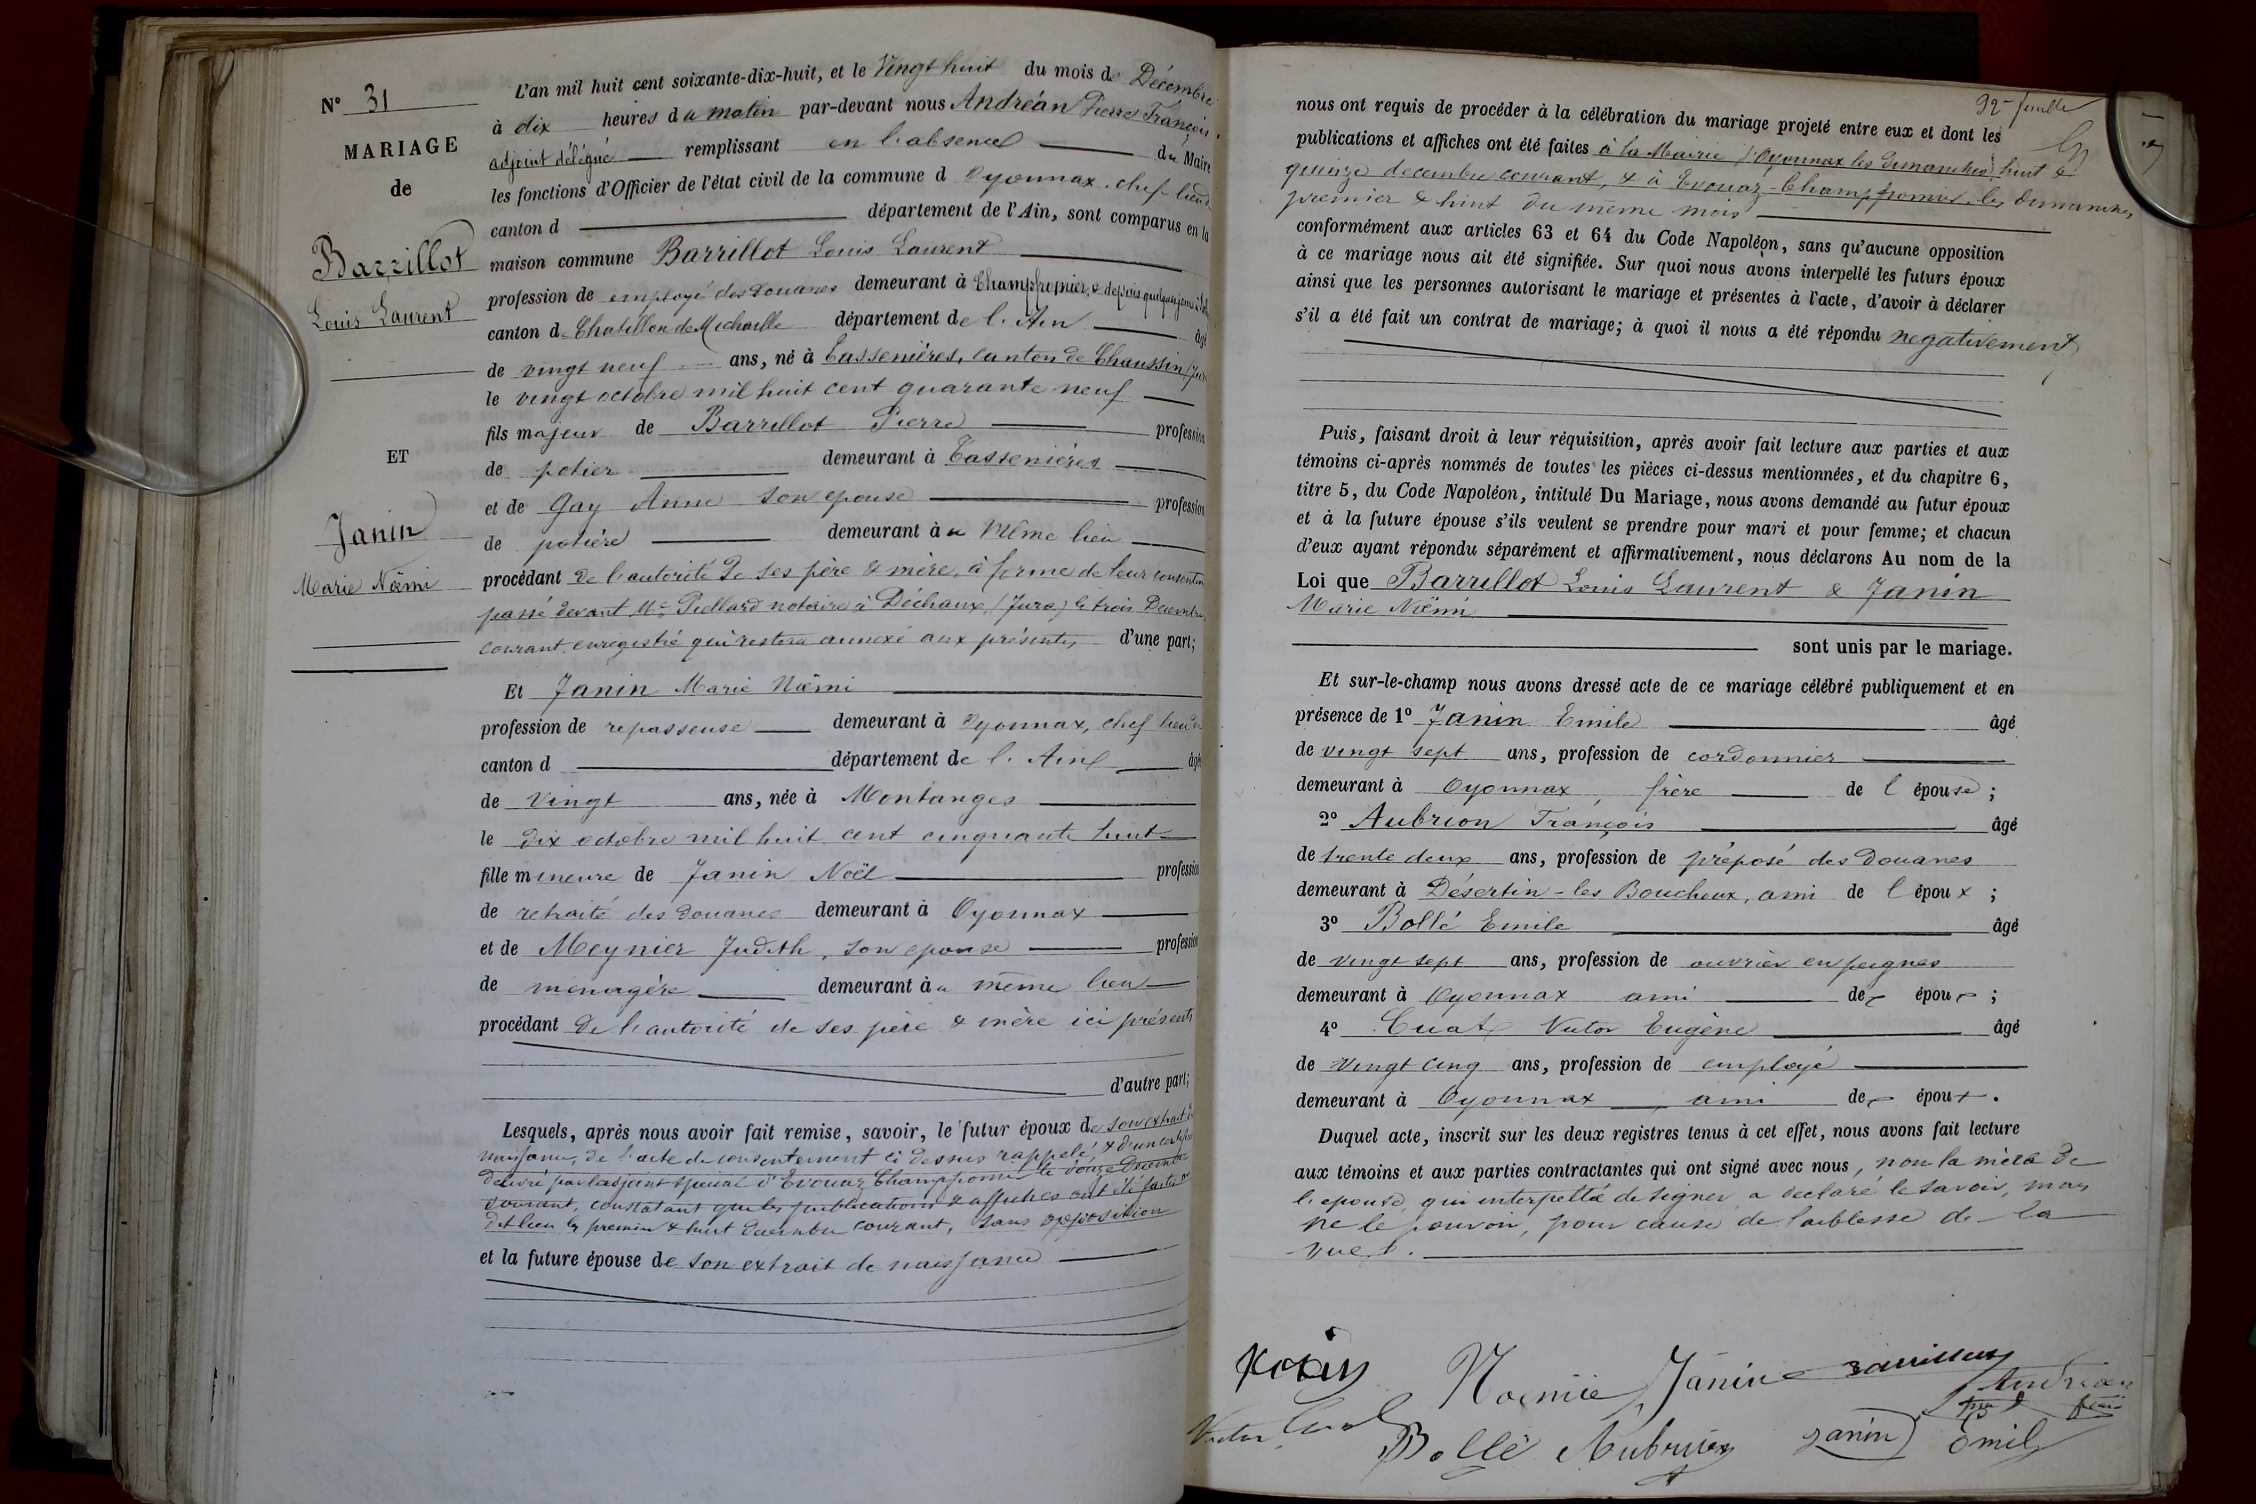 N° 31
MARIAGE
de
Barrillot
Louis Laurent
ET
Janin
Marie Noëmi
L'an mil huit cent soixante-dix-huit, et le Vingt huit du mois de Décembre
à dix heures du matin par-devant nous Andréan Pierre François
adjoint délégué remplissant en l'absence du Maire
les fonctions d'Officier de l'état civil de la commune d Oyonnax, chef lieu de
canton d département de l'Ain, sont comparus en la
maison commune Barrillot Louis Laurent
profession de employé des Douanes demeurant à Champfromier, & depuis quelques jours
canton d Chatillon de Michaille département de l'Ain âgé
de vingt neuf ans, né à Tassenières, canton de Chaussin (Jura
le vingt octobre mil huit cent quarante neuf
fils majeur de Barrillot Pierre profession
de potier demeurant à Tassenières
et de Gay Anne son epouse profession
de potière demeurant à u Même lieu
procédant de l'autorité de ses père & mère, à forme de leur consentem
passé devant Me Piellard notaire à Déchaux, (Jura) le trois Decembre
courant, enregistré qui restera annexé aux présentes d'une part;
Et Janin Marie Noëmi
profession de repasseuse demeurant à Oyonnax, chef lieu de
canton d département de l'Ain âgée
de Vingt ans, née à Montanges
le dix octobre mil huit cent cinquante huit
fille mineure de Janin Noël profession
de retraité des douanes demeurant à Oyonnax
et de Meynier Judith, son epouse profession
de menagère demeurant à u même lieu
procédant de l'autorité de ses père & mère ici présents
d'autre part;
Lesquels, après nous avoir fait remise, savoir, le futur époux de son extrait de
naissance, de l'acte de consentement ci dessus rappelé, & d'un certificat
délivré par l'adjoint spécial d'Evouaz Champfromier le douze Decembre
courant, constatant que les publications & affiches ont été faites au
dit lieu les premier & huit Decembre courant, sans opposition
et la future épouse de son extrait de naissance
92e feuille
nous ont requis de procéder à la célébration du mariage projeté entre eux et dont les
publications et affiches ont été faites à la Mairie d'Oyonnax les dimanches huit &
quinze decembre courant, & à Evouaz-Champfromier, les dimanches
premier & huit du même mois
conformément aux articles 63 et 64 du Code Napoléon, sans qu'aucune opposition
à ce mariage nous ait été signifiée. Sur quoi nous avons interpellé les futurs époux
ainsi que les personnes autorisant le mariage et présentes à l'acte, d'avoir à déclarer
s'il a été fait un contrat de mariage; à quoi il nous a été répondu negativement
Puis, faisant droit à leur réquisition, après avoir fait lecture aux parties et aux
témoins ci-après nommés de toutes les pièces ci-dessus mentionnées, et du chapitre 6,
titre 5, du Code Napoléon, intitulé Du Mariage, nous avons demandé au futur époux
et à la future épouse s'ils veulent se prendre pour mari et pour femme; et chacun
d'eux ayant répondu séparément et affirmativement, nous déclarons Au nom de la
Loi que Barrillot Louis Laurent & Janin
Marie Noëmi
sont unis par le mariage.
Et sur-le-champ nous avons dressé acte de ce mariage célébré publiquement et en
présence de 1° Janin Emile âgé
de vingt sept ans, profession de cordonnier
demeurant à Oyonnax, frère de l épouse ;
2° Aubrion François âgé
de trente deux ans, profession de préposé des Douanes
demeurant à Désertin-les Bouchoux, ami de l époux ;
3° Bollé Emile âgé
de vingt sept ans, profession de ouvrier en peignes
demeurant à Oyonnax ami de épou ;
4° Cuat Victor Eugène âgé
de vingt cinq ans, profession de employé
demeurant à Oyonnax ami de épou .
Duquel acte, inscrit sur les deux registres tenus à cet effet, nous avons fait lecture
aux témoins et aux parties contractantes qui ont signé avec nous, non la mère de
l'epouse, qui interpellée de signer a declaré le savoir, mais
ne le pouvoir, pour cause de faiblesse de la
vue.
Noemie Janin
Barrillot
Andréan
Victor Cuat
Bollé
Aubrion
Janin Emile